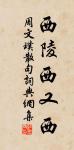 西陵西又西
周文璞散句詞典網集